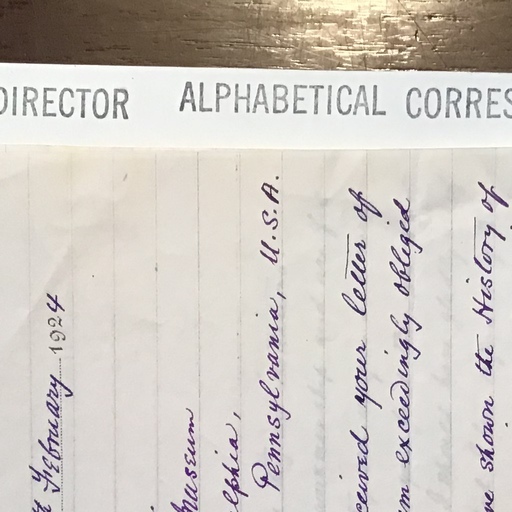 th February 1924
Museum
elphia,
Pennsylvania, U.S.A.
ceived your letter of
am exceedingly obliged
ve shown the History of
DIRECTOR ALPHABETICAL CORRES